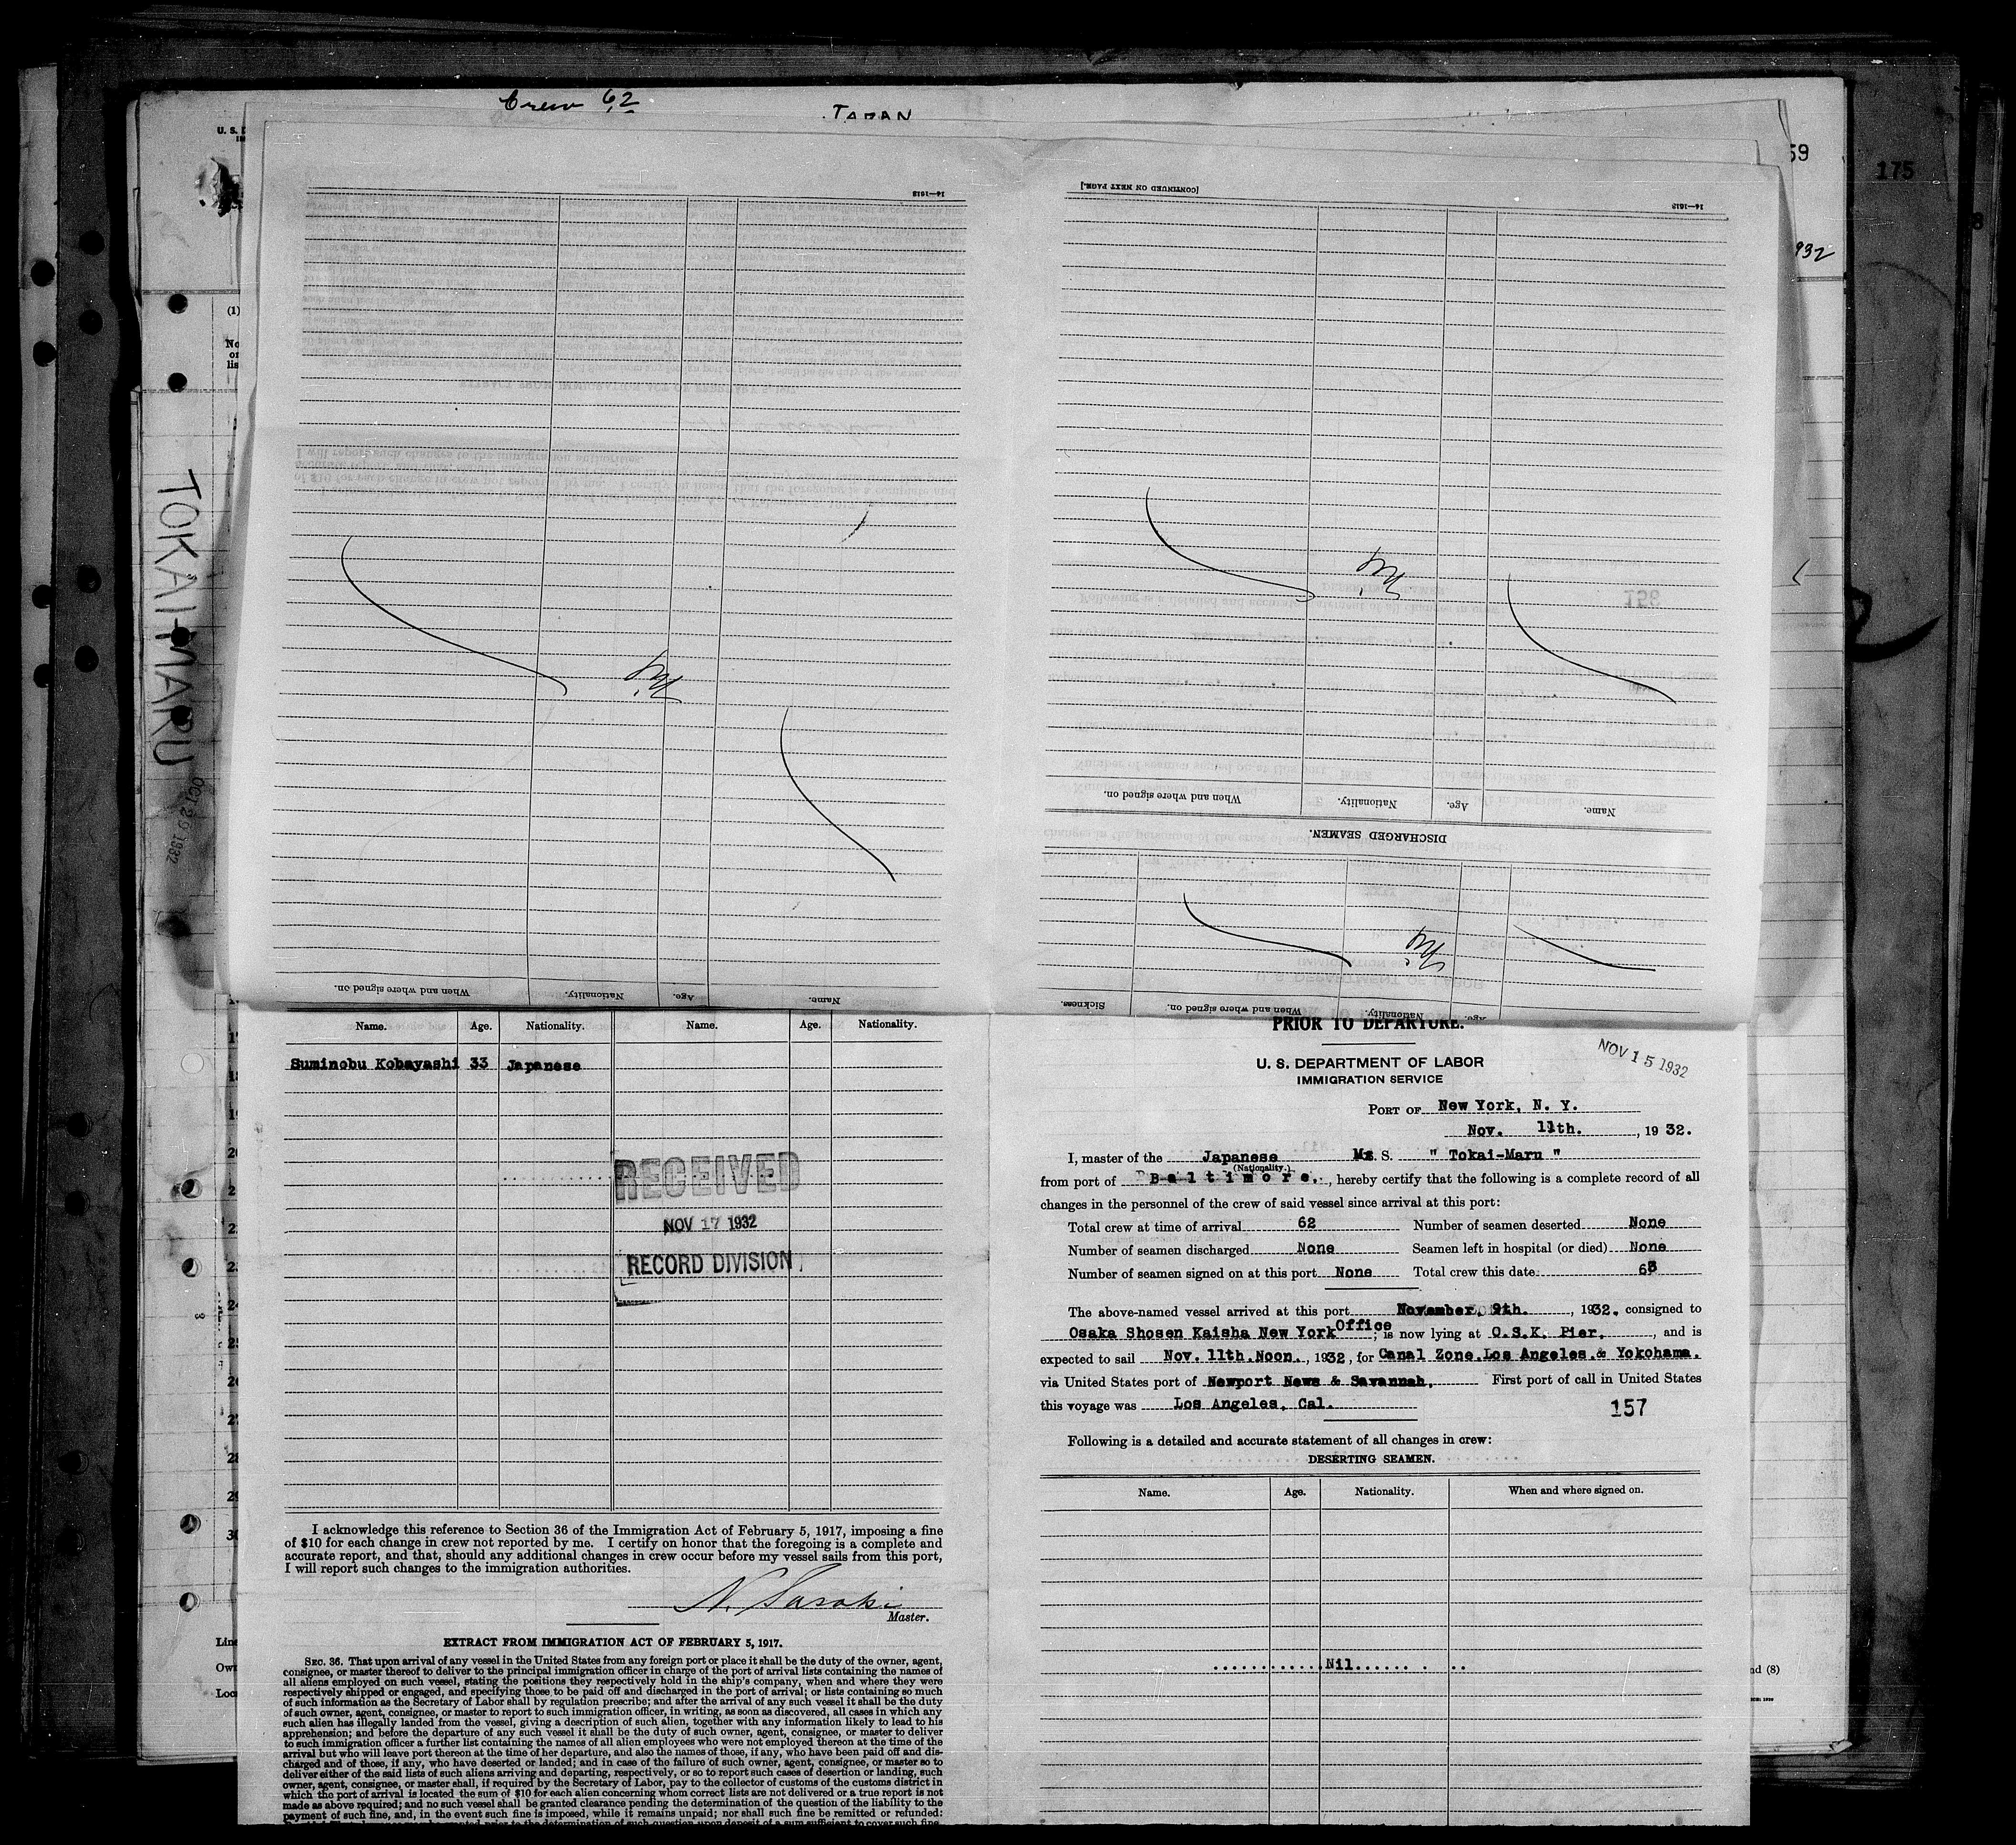 Crew 62
JAPAN
U. S. D
59
175
8
932
TOKAI-MARU
OCT 29 1932
(1)
No
or
lis
14—1613
[CONTINUED ON NEXT PAGE.]
14—1613
Nil
Nil
158
When and where signed on.
Nationality.
Age.
Name.
DISCHARGED SEAMEN.
Nil
When and where signed on.
Nationality.
Age.
Name.
Sickness.
When and where signed on.
Nationality.
Age.
Name. Age. Nationality. Name. Age. Nationality.
Suminobu Kobayashi 33 Japanese
RECEIVED
NOV 17 1932
RECORD DIVISION
I acknowledge this reference to Section 36 of the Immigration Act of February 5, 1917, imposing a fine
of $10 for each change in crew not reported by me. I certify on honor that the foregoing is a complete and
accurate report, and that, should any additional changes in crew occur before my vessel sails from this port,
I will report such changes to the immigration authorities.
N. Sasaki
Master.
EXTRACT FROM IMMIGRATION ACT OF FEBRUARY 5, 1917.
SEC. 36. That upon arrival of any vessel in the United States from any foreign port or place it shall be the duty of the owner, agent,
consignee, or master thereof to deliver to the principal immigration officer in charge of the port of arrival lists containing the names of
all aliens employed on such vessel, stating the positions they respectively hold in the ship's company, when and where they were
respectively shipped or engaged, and specifying those to be paid off and discharged in the port of arrival; or lists containing so much
of such information as the Secretary of Labor shall by regulation prescribe; and after the arrival of any such vessel it shall be the duty
of such owner, agent, consignee, or master to report to such immigration officer, in writing, as soon as discovered, all cases in which any
such alien has illegally landed from the vessel, giving a description of such alien, together with any information likely to lead to his
apprehension; and before the departure of any such vessel it shall be the duty of such owner, agent, consignee, or master to deliver
to such immigration officer a further list containing the names of all alien employees who were not employed thereon at the time of the
arrival but who will leave port thereon at the time of her departure, and also the names of those, if any, who have been paid off and dis-
charged and of those, if any, who have deserted or landed; and in case of the failure of such owner, agent, consignee, or master so to
deliver either of the said lists of such aliens arriving and departing, respectively, or so to report such cases of desertion or landing, such
owner, agent, consignee, or master shall, if required by the Secretary of Labor, pay to the collector of customs of the customs district in
which the port of arrival is located the sum of $10 for each alien concerning whom correct lists are not delivered or a true report is not
made as above required; and no such vessel shall be granted clearance pending the determination of the question of the liability to the
payment of such fine, and, in the event such fine is imposed, while it remains unpaid; nor shall such fine be remitted or refunded:
PRIOR TO DEPARTURE.
U. S. DEPARTMENT OF LABOR
IMMIGRATION SERVICE
NOV 15 1932
PORT OF New York, N. Y.
Nov. 11th. , 1932.
I, master of the Japanese M. S. " Tokai-Maru "
(Nationality.)
from port of Baltimore. , hereby certify that the following is a complete record of all
changes in the personnel of the crew of said vessel since arrival at this port:
Total crew at time of arrival 62 Number of seamen deserted None
Number of seamen discharged None Seamen left in hospital (or died) None
Number of seamen signed on at this port None Total crew this date 63
The above-named vessel arrived at this port November. 9th. , 1932. consigned to
Osaka Shosen Kaisha New York Office ; is now lying at O.S.K. Pier. , and is
expected to sail Nov. 11th.Noon. , 1932 , for Canal Zone.Los Angeles.& Yokohama.
via United States port of Newport News & Savannah. First port of call in United States
this voyage was Los Angeles, Cal.
157
Following is a detailed and accurate statement of all changes in crew:
DESERTING SEAMEN.
Name. Age. Nationality. When and where signed on.
Nil
Line
Own
Loc
nd (8)